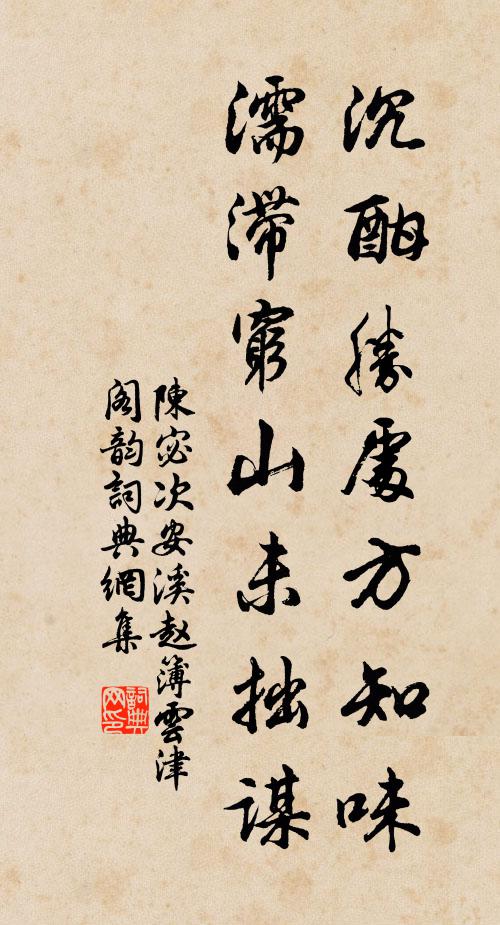 沉酣勝處方知味
濡滯窮山未拙謀
陳宓次安溪赵簿雲津
阁韵詞典網集
詞典网印